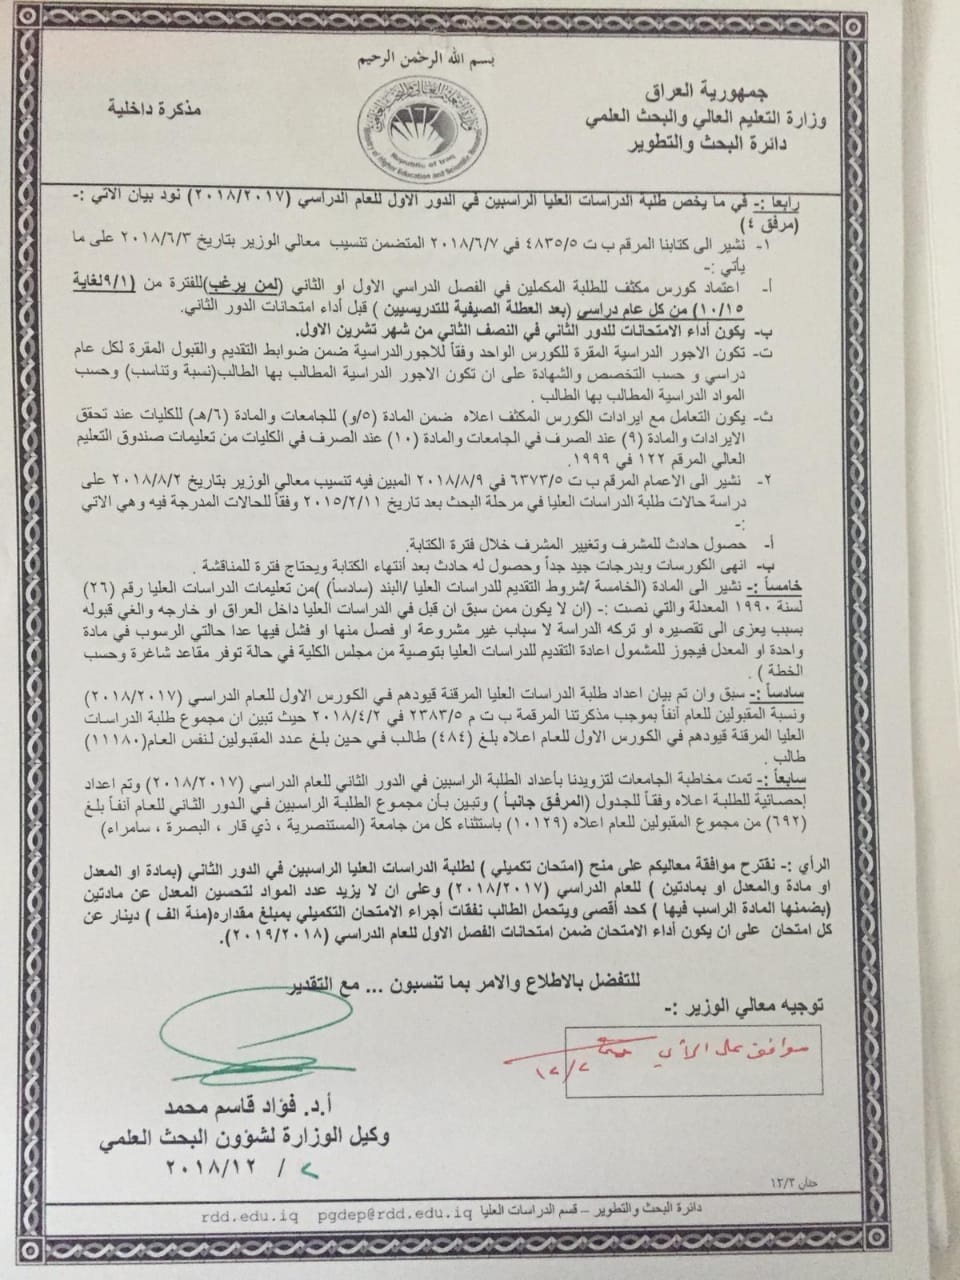 بسم الله الرحمن الرحيم
جمهورية العراق
وزارة التعليم العالي والبحث العلمي
دائرة البحث والتطوير
مذكرة داخلية
Republic of Iraq
Ministry of Higher Education and Scientific Research
رابعاً :- في ما يخص طلبة الدراسات العليا الراسبين في الدور الاول للعام الدراسي (٢٠١٨/٢٠١٧) نود بيان الاتي :-
(مرفق ٤)
١- نشير الى كتابنا المرقم ب ت ٤٨٣٥/٥ في ٢٠١٨/٦/٧ المتضمن تنسيب معالي الوزير بتاريخ ٢٠١٨/٦/٣ على ما
يأتي :-
أ- اعتماد كورس مكثف للطلبة المكملين في الفصل الدراسي الاول او الثاني (لمن يرغب)للفترة من (٩/١لغاية
١٠/١٥) من كل عام دراسي (بعد العطلة الصيفية للتدريسيين ) قبل أداء امتحانات الدور الثاني.
ب- يكون أداء الامتحانات للدور الثاني في النصف الثاني من شهر تشرين الاول.
ت- تكون الاجور الدراسية المقرة للكورس الواحد وفقاً للاجورالدراسية ضمن ضوابط التقديم والقبول المقرة لكل عام
دراسي و حسب التخصص والشهادة على ان تكون الاجور الدراسية المطالب بها الطالب(نسبة وتناسب) وحسب
المواد الدراسية المطالب بها الطالب .
ث- يكون التعامل مع ايرادات الكورس المكثف اعلاه ضمن المادة (٥/و) للجامعات والمادة (٦/هـ) للكليات عند تحقق
الايرادات والمادة (٩) عند الصرف في الجامعات والمادة (١٠) عند الصرف في الكليات من تعليمات صندوق التعليم
العالي المرقم ١٢٢ في ١٩٩٩.
٢- نشير الى الاعمام المرقم ب ت ٦٣٧٣/٥ في ٢٠١٨/٨/٩ المبين فيه تنسيب معالي الوزير بتاريخ ٢٠١٨/٨/٢ على
دراسة حالات طلبة الدراسات العليا في مرحلة البحث بعد تاريخ ٢٠١٥/٢/١١ وفقاً للحالات المدرجة فيه وهي الاتي
:-
أ- حصول حادث للمشرف وتغيير المشرف خلال فترة الكتابة.
ب- انهى الكورسات وبدرجات جيد جداً وحصول له حادث بعد أنتهاء الكتابة ويحتاج فترة للمناقشة .
خامساً :- نشير الى المادة (الخامسة /شروط التقديم للدراسات العليا /البند (سادساً) )من تعليمات الدراسات العليا رقم (٢٦)
لسنة ١٩٩٠ المعدلة والتي نصت :- (ان لا يكون ممن سبق ان قبل في الدراسات العليا داخل العراق او خارجه والغي قبوله
بسبب يعزى الى تقصيره او تركه الدراسة لا سباب غير مشروعة او فصل منها او فشل فيها عدا حالتي الرسوب في مادة
واحدة او المعدل فيجوز للمشمول اعادة التقديم للدراسات العليا بتوصية من مجلس الكلية في حالة توفر مقاعد شاغرة وحسب
الخطة ) .
سادساً :- سبق وان تم بيان اعداد طلبة الدراسات العليا المرقنة قيودهم في الكورس الاول للعام الدراسي (٢٠١٨/٢٠١٧)
ونسبة المقبولين للعام أنفاً بموجب مذكرتنا المرقمة ب ت م ٢٣٨٣/٥ في ٢٠١٨/٤/٢ حيث تبين ان مجموع طلبة الدراسات
العليا المرقنة قيودهم في الكورس الاول للعام اعلاه بلغ (٤٨٤) طالب في حين بلغ عدد المقبولين لنفس العام(١١١٨٠)
طالب .
سابعاً :- تمت مخاطبة الجامعات لتزويدنا بأعداد الطلبة الراسبين في الدور الثاني للعام الدراسي (٢٠١٨/٢٠١٧) وتم اعداد
إحصائية للطلبة اعلاه وفقاً للجدول (المرفق جانباً ) وتبين بأن مجموع الطلبة الراسبين في الدور الثاني للعام أنفاً بلغ
(٦٩٢) من مجموع المقبولين للعام اعلاه (١٠١٢٩) باستثناء كل من جامعة (المستنصرية ، ذي قار ، البصرة ، سامراء)
الرأي :- نقترح موافقة معاليكم على منح (امتحان تكميلي ) لطلبة الدراسات العليا الراسبين في الدور الثاني (بمادة او المعدل
او مادة والمعدل او بمادتين ) للعام الدراسي (٢٠١٨/٢٠١٧) وعلى ان لا يزيد عدد المواد لتحسين المعدل عن مادتين
(بضمنها المادة الراسب فيها ) كحد أقصى ويتحمل الطالب نفقات أجراء الامتحان التكميلي بمبلغ مقداره(مئة الف ) دينار عن
كل امتحان على ان يكون أداء الامتحان ضمن امتحانات الفصل الاول للعام الدراسي (٢٠١٩/٢٠١٨).
للتفضل بالاطلاع والامر بما تنسبون ... مع التقدير
توجيه معالي الوزير :-
موافق على الرأي
١٢/٢
أ.د. فؤاد قاسم محمد
وكيل الوزارة لشؤون البحث العلمي
٢ / ٢٠١٨/١٢
حنان ١٢/٢
دائرة البحث والتطوير – قسم الدراسات العليا rdd.edu.iq pgdep@rdd.edu.iq